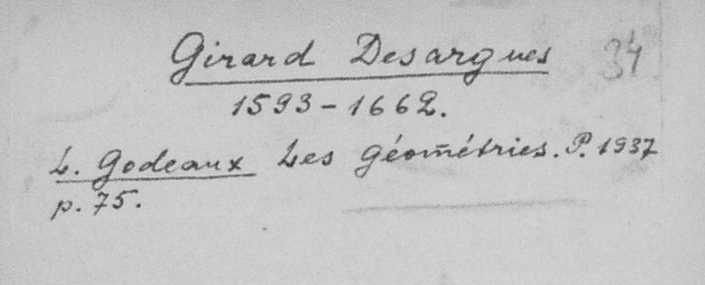 Girard Desargues 34
1593-1662.
L. Godeaux Les géométries. P. 1937
p. 75.